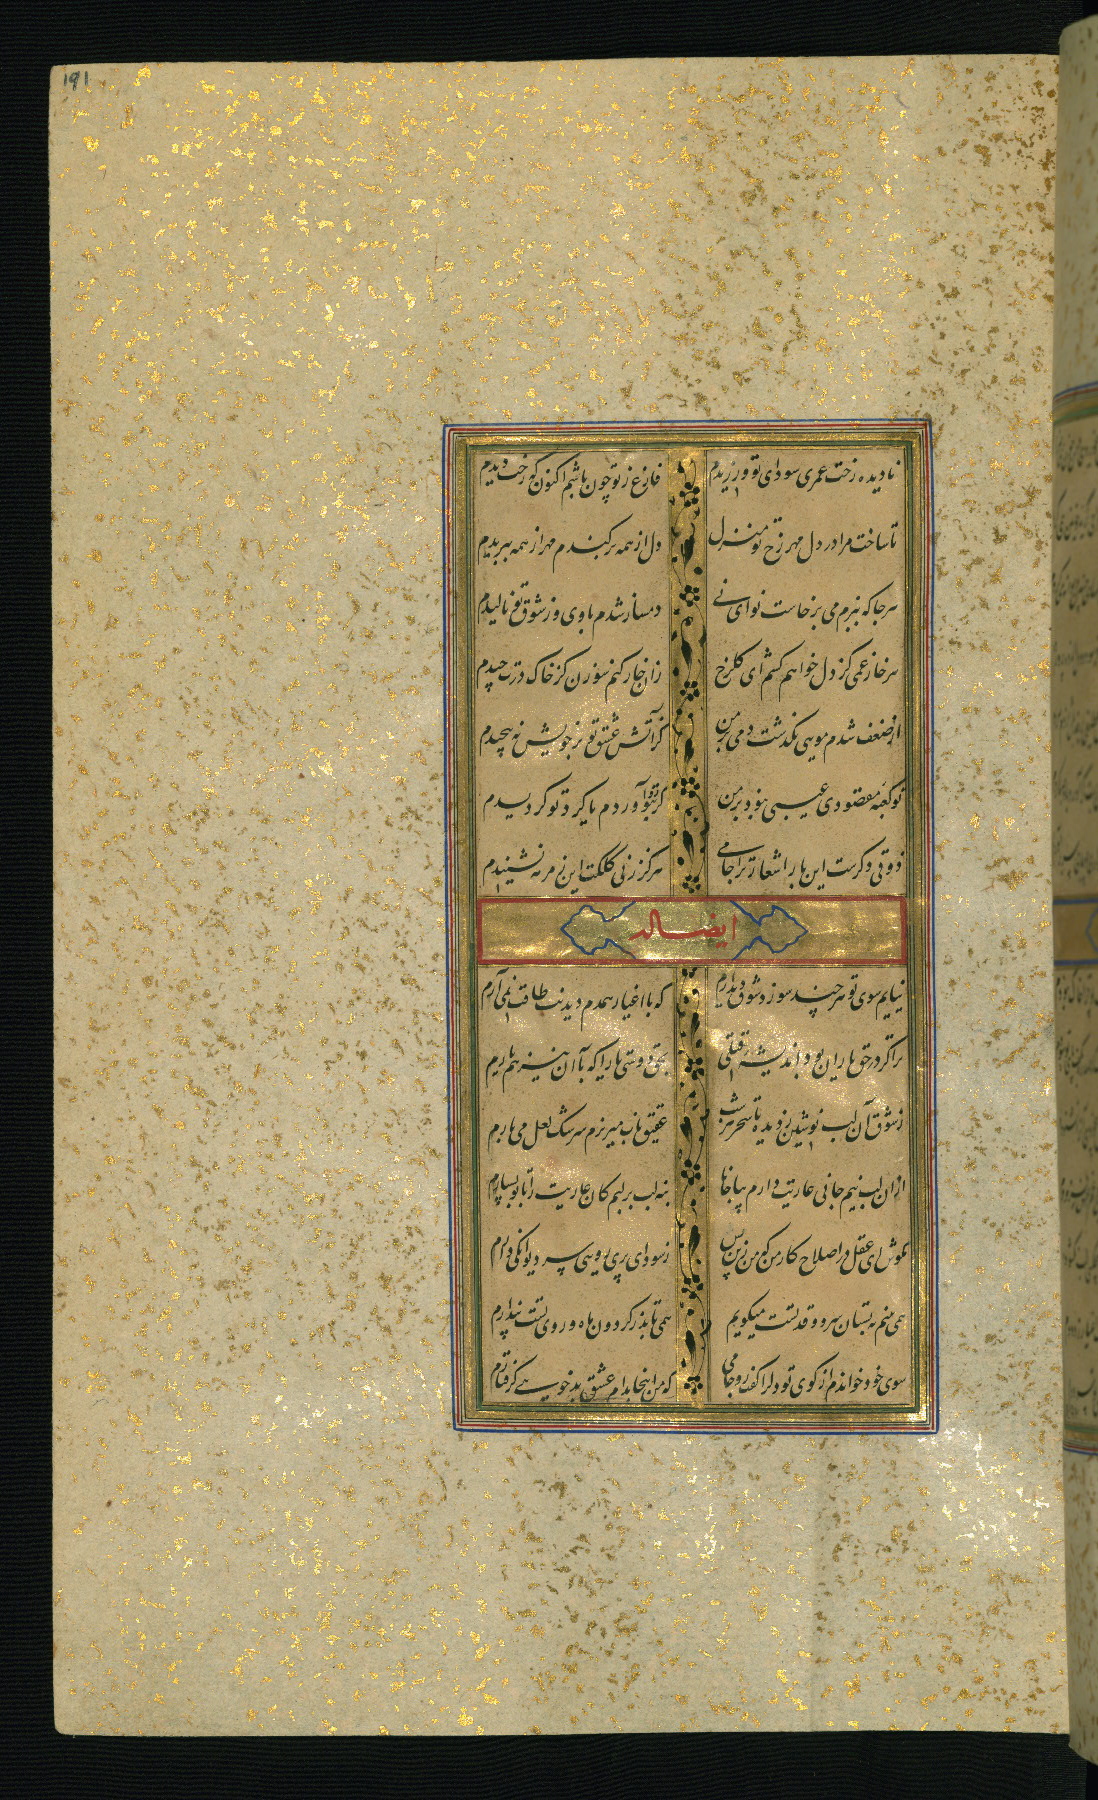 ۱۹۱
نادیده رخت عمری سودای تو ورزیدم فارغ ز تو چون باشم اکنون که رخت دیدم
تا ساخت مرا در دل مهر رخ تو منزل دل از همه برکندم مهر از همه ببریدم
هر جا که ببزم می برخاست نوای نی دمساز شدم با وی وز شوق تو نالیدم
هر خار غمی کز دل خواهم کشم ای گلرخ زان خار کنم سوزن کز خاک درت چیدم
از ضعف شدم مویی نگذشت دمی بر من کز آتش عشق تو بر خویش نپیچیدم
تو کعبه مقصودی عیبی نبود بر من گر رو بتو آوردم یا گرد تو گردیدم
ذوقی دگرست این بار اشعار ترا جامی هرگز ز نی کلکت این زمزمه نشنیدم
ایضا له
نیایم سوی تو هر چند سوزد شوق دیدارم که با اغیار همدم دیدنت طاقت نمی آرم
برا گر در حق یاران بود اندیشه قتلی بحق دوستی یارا که با آن نیز هم یارم
ز شوق آن لب نوشین ز دیده تا سحر هر شب عقیق ناب میریزم سرشک لعل می بارم
از ان لب نیم جانی عاریت دارم بیا جانا بنه لب بر لبم کان عاریت را با تو بسپارم
مکوش ای عقل در اصلاح کار من که من زین پس ز سودای پری رویی سر دیوانگی دارم
همی بینم به بستان سرو و قد تست میگویم همی تابد ز گردون ماه و روی تست پندارم
سوی خود خواندم از کوی تو دلرا گفت رو جامی که من اینجا بدام عشق بدخویی گرفتارم